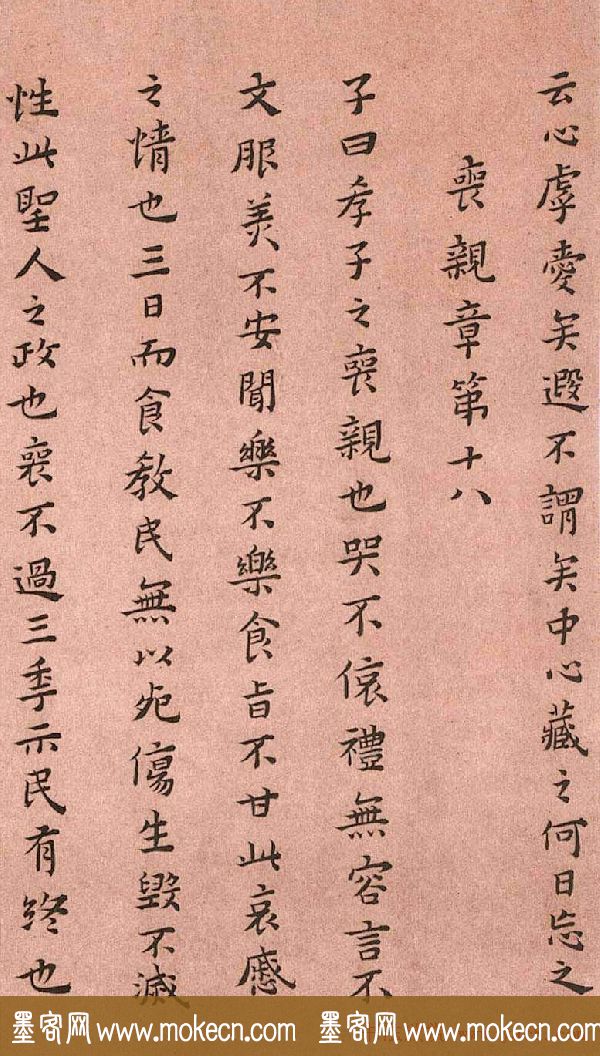 云心虖愛矣遐不謂矣中心藏之何日忘之
喪親章第十八
子曰孝子之喪親也哭不偯禮無容言不
文服美不安聞樂不樂食旨不甘此哀慼
之情也三日而食教民無以死傷生毀不滅
性此聖人之政也喪不過三季示民有終也
墨客网 www.mokecn.com 墨客网 www.mokecn.com